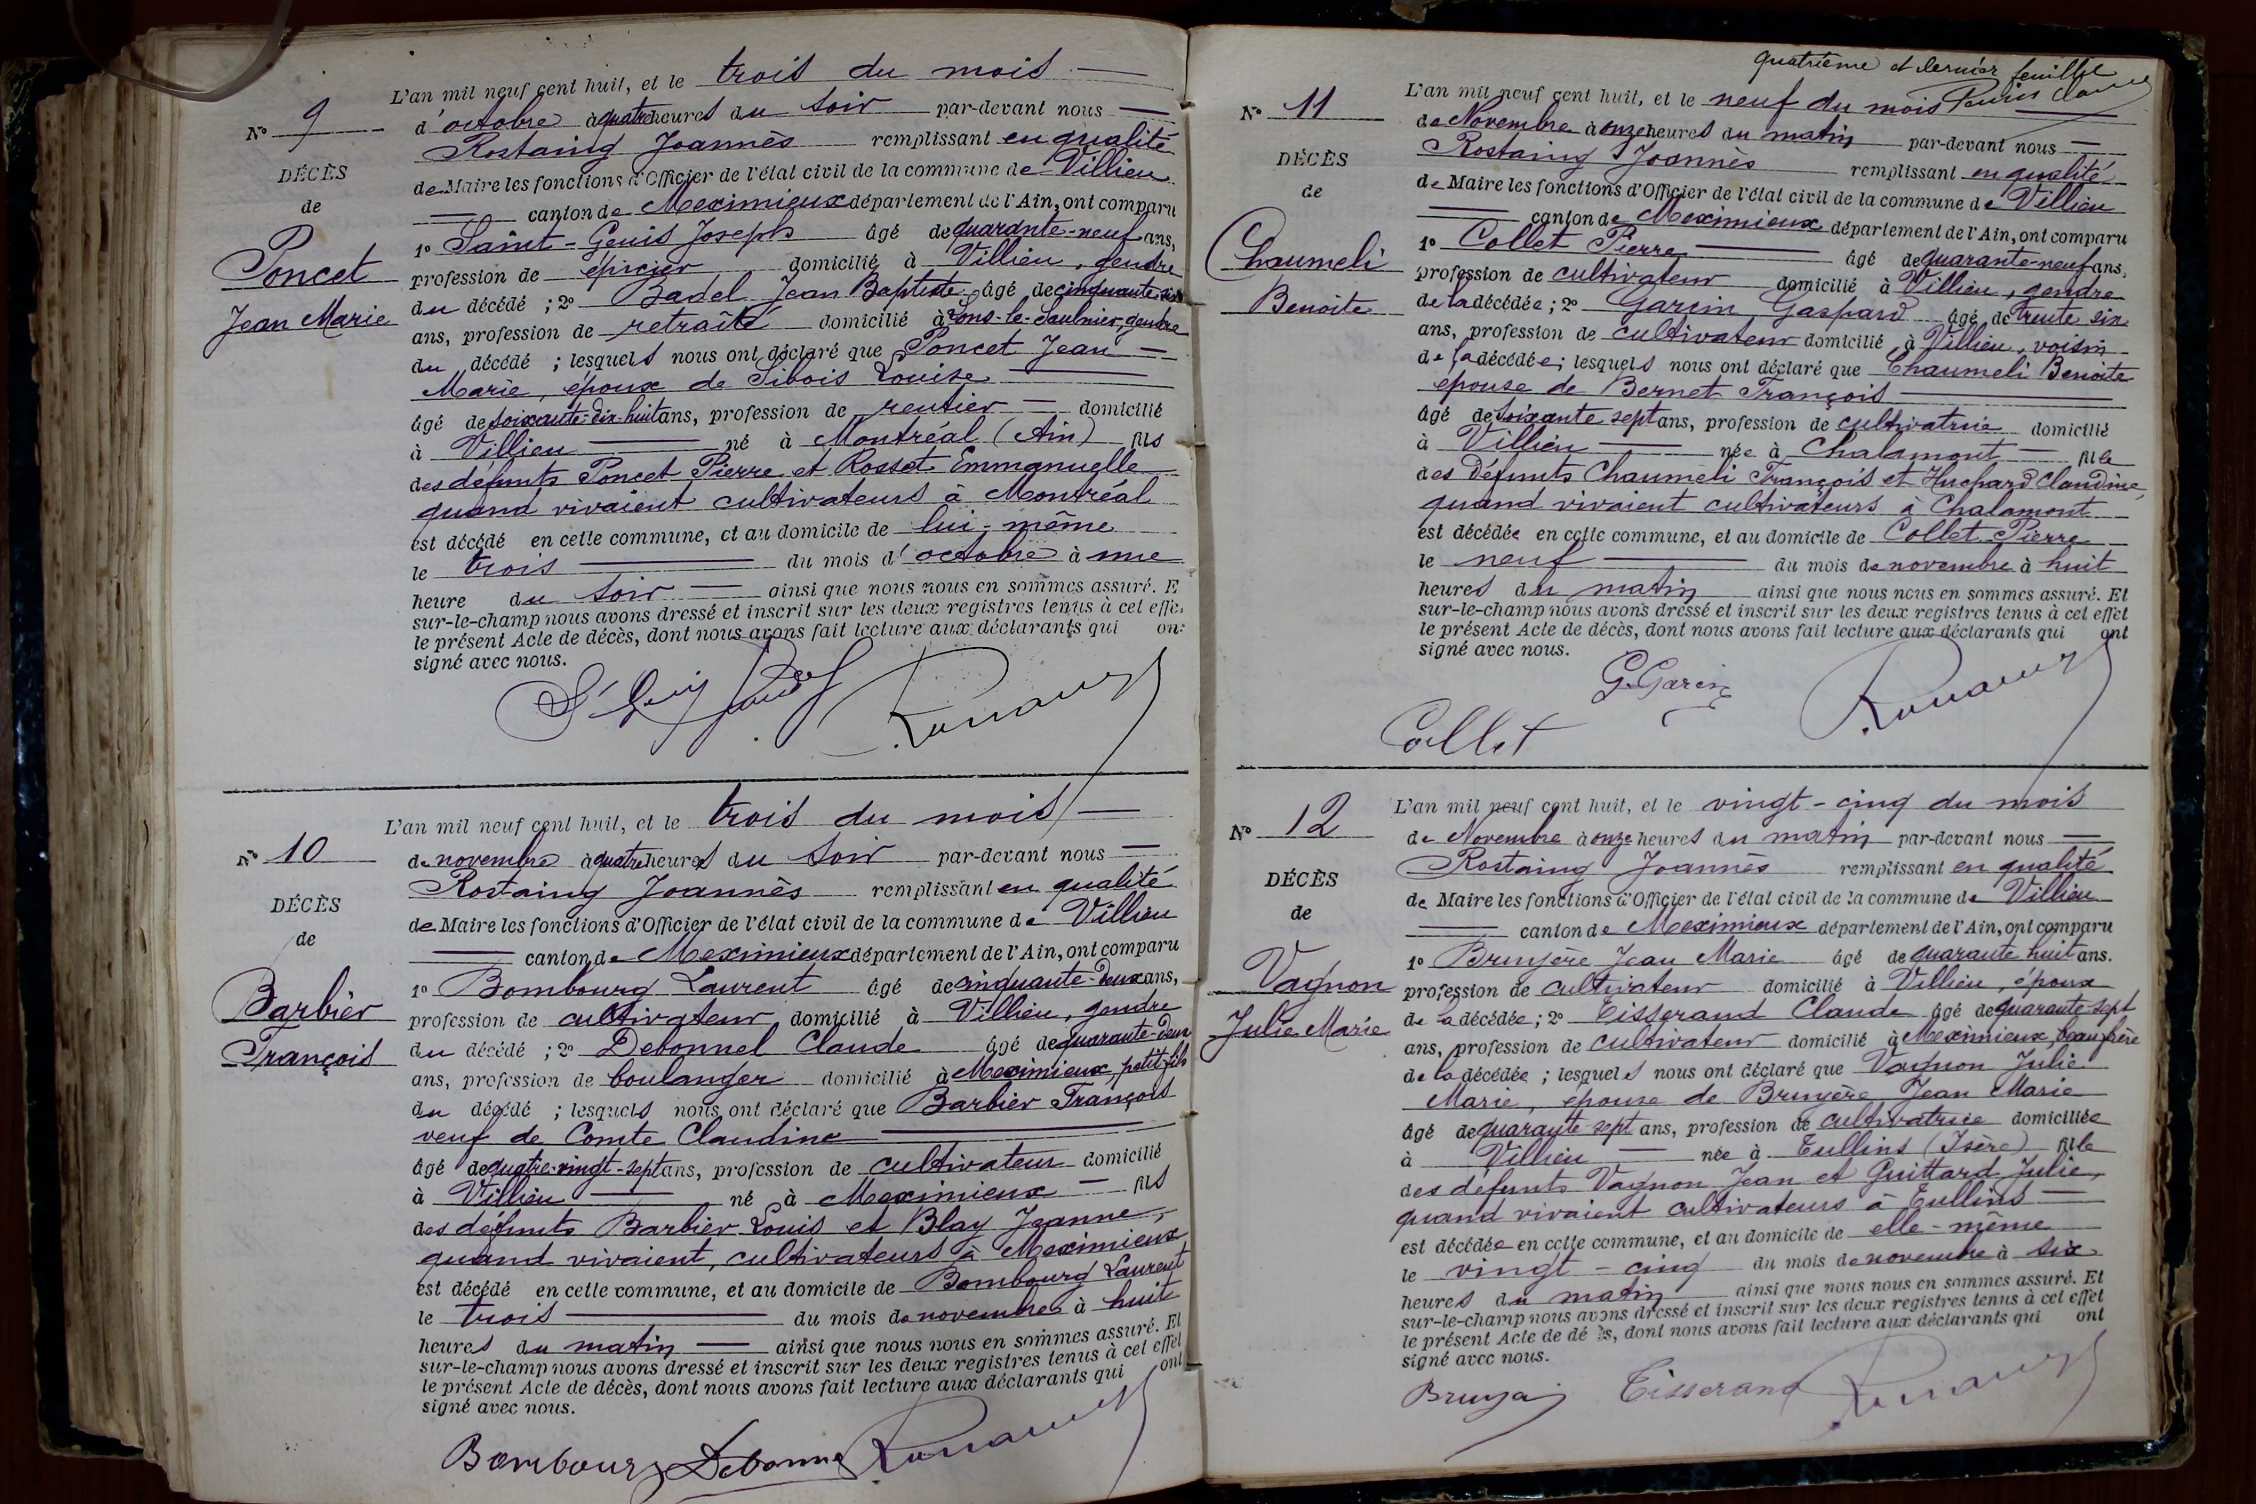 L'an mil neuf cent huit, et le trois du mois
N° 9
d'octobre à quatre heures du soir par-devant nous
Rostaing Joannès remplissant en qualité
DÉCÈS
de Maire les fonctions d'Officier de l'état civil de la commune de Villieu
de
canton de Meximieux département de l'Ain, ont comparu
1° Saint-Genis Joseph âgé de quarante-neuf ans,
Poncet
profession de épicier domicilié à Villieu, gendre
du décédé ; 2° Badel Jean Baptiste âgé de cinquante six
Jean Marie
ans, profession de retraité domicilié à Lons-le-Saulnier, gendre
du décédé ; lesquels nous ont déclaré que Poncet Jean
Marie, époux de Sibois Louise
âgé de soixante-dix-huit ans, profession de rentier domicilié
à Villieu né à Montréal (Ain) fils
des défunts Poncet Pierre et Rosset Emmanuelle
quand vivaient cultivateurs à Montréal
est décédé en cette commune, et au domicile de lui-même
le trois du mois d'octobre à une
heure du soir ainsi que nous nous en sommes assuré. E
sur-le-champ nous avons dressé et inscrit sur les deux registres tenus à cet effe
le présent Acte de décès, dont nous avons fait lecture aux déclarants qui on
signé avec nous.
L'an mil neuf cent huit, et le trois du mois
N° 10
de novembre à quatre heures du soir par-devant nous
Rostaing Joannès remplissant en qualité
DÉCÈS
de Maire les fonctions d'Officier de l'état civil de la commune de Villieu
de
canton de Meximieux département de l'Ain, ont comparu
1° Bombourg Laurent âgé de cinquante-deux ans,
Barbier
profession de cultivateur domicilié à Villieu, gendre
du décédé ; 2° Debonnel Claude âgé de quarante-deux
François
ans, profession de boulanger domicilié à Meximieux, petit-fils
du décédé ; lesquels nous ont déclaré que Barbier François
veuf de Comte Claudine
âgé de quatre-vingt-sept ans, profession de cultivateur domicilié
à Villieu né à Meximieux fils
des défunts Barbier Louis et Blay Jeanne,
quand vivaient, cultivateurs à Meximieux
est décédé en cette commune, et au domicile de Bombourg Laurent
le trois du mois de novembre à huit
heures du matin ainsi que nous nous en sommes assuré. Et
sur-le-champ nous avons dressé et inscrit sur les deux registres tenus à cet effet
le présent Acte de décès, dont nous avons fait lecture aux déclarants qui ont
signé avec nous.
Bombourg Debonne
quatrième et dernier feuillet
L'an mil neuf cent huit, et le neuf du mois
N° 11
de Novembre à onze heures du matin par-devant nous
Rostaing Joannès remplissant en qualité
DÉCÈS
de Maire les fonctions d'Officier de l'état civil de la commune de Villieu
de
canton de Meximieux département de l'Ain, ont comparu
1° Collet Pierre âgé de quarante-neuf ans,
Chaumeli
profession de cultivateur domicilié à Villieu, gendre
Benoite
de la décédée ; 2° Garcin Gaspard âgé de trente six
ans, profession de cultivateur domicilié à Villieu, voisin
de la décédée ; lesquels nous ont déclaré que Chaumeli Benoite
épouse de Bernet François
âgé de soixante sept ans, profession de cultivatrice domicilié
à Villieu née à Chalamont fille
des Défunts Chaumeli François et Huchard Claudine,
quand vivaient cultivateurs à Chalamont
est décédée en cette commune, et au domicile de Collet Pierre
le neuf du mois de novembre à huit
heures du matin ainsi que nous nous en sommes assuré. Et
sur-le-champ nous avons dressé et inscrit sur les deux registres tenus à cet effet
le présent Acte de décès, dont nous avons fait lecture aux déclarants qui ont
signé avec nous.
G. Garcin
Collet
L'an mil neuf cent huit, et le vingt-cinq du mois
N° 12
de Novembre à onze heures du matin par-devant nous
Rostaing Joannès remplissant en qualité
DÉCÈS
de Maire les fonctions d'Officier de l'état civil de la commune de Villieu
de
canton de Meximieux département de l'Ain, ont comparu
1° Bruyère Jean Marie âgé de quarante huit ans.
Vagnon
profession de cultivateur domicilié à Villieu, époux
de la décédée ; 2° Tisserand Claude âgé de quarante-sept
Julie Marie
ans, profession de cultivateur domicilié à Meximieux, beau frère
de la décédée ; lesquels nous ont déclaré que Vagnon Julie
Marie, épouse de Bruyère Jean Marie
âgé de quarante-sept ans, profession de cultivatrice domiciliée
à Villieu née à Tullins (Isère) fille
des défunts Vagnon Jean et Guittard Julie,
quand vivaient cultivateurs à Tullins
est décédée en cette commune, et au domicile de elle-même
le vingt-cinq du mois de novembre à six
heures du matin ainsi que nous nous en sommes assuré. Et
sur-le-champ nous avons dressé et inscrit sur les deux registres tenus à cet effet
le présent Acte de dé s, dont nous avons fait lecture aux déclarants qui ont
signé avec nous.
Tisserand